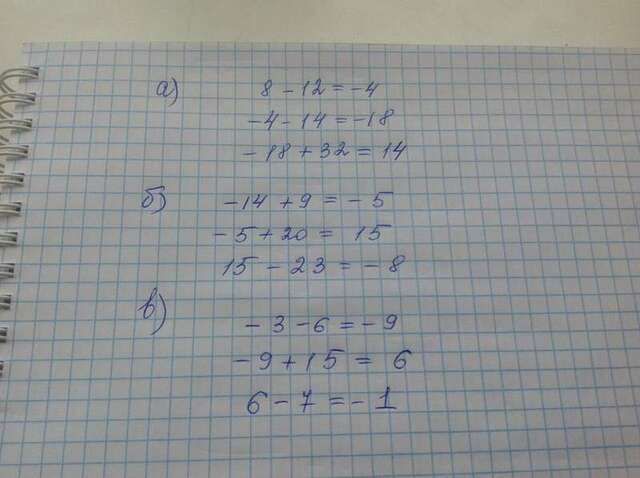 а) 8 - 12 = -4
-4 - 14 = -18
-18 + 32 = 14
б) -14 + 9 = -5
-5 + 20 = 15
15 - 23 = -8
в)
-3 - 6 = -9
-9 + 15 = 6
6 - 7 = -1